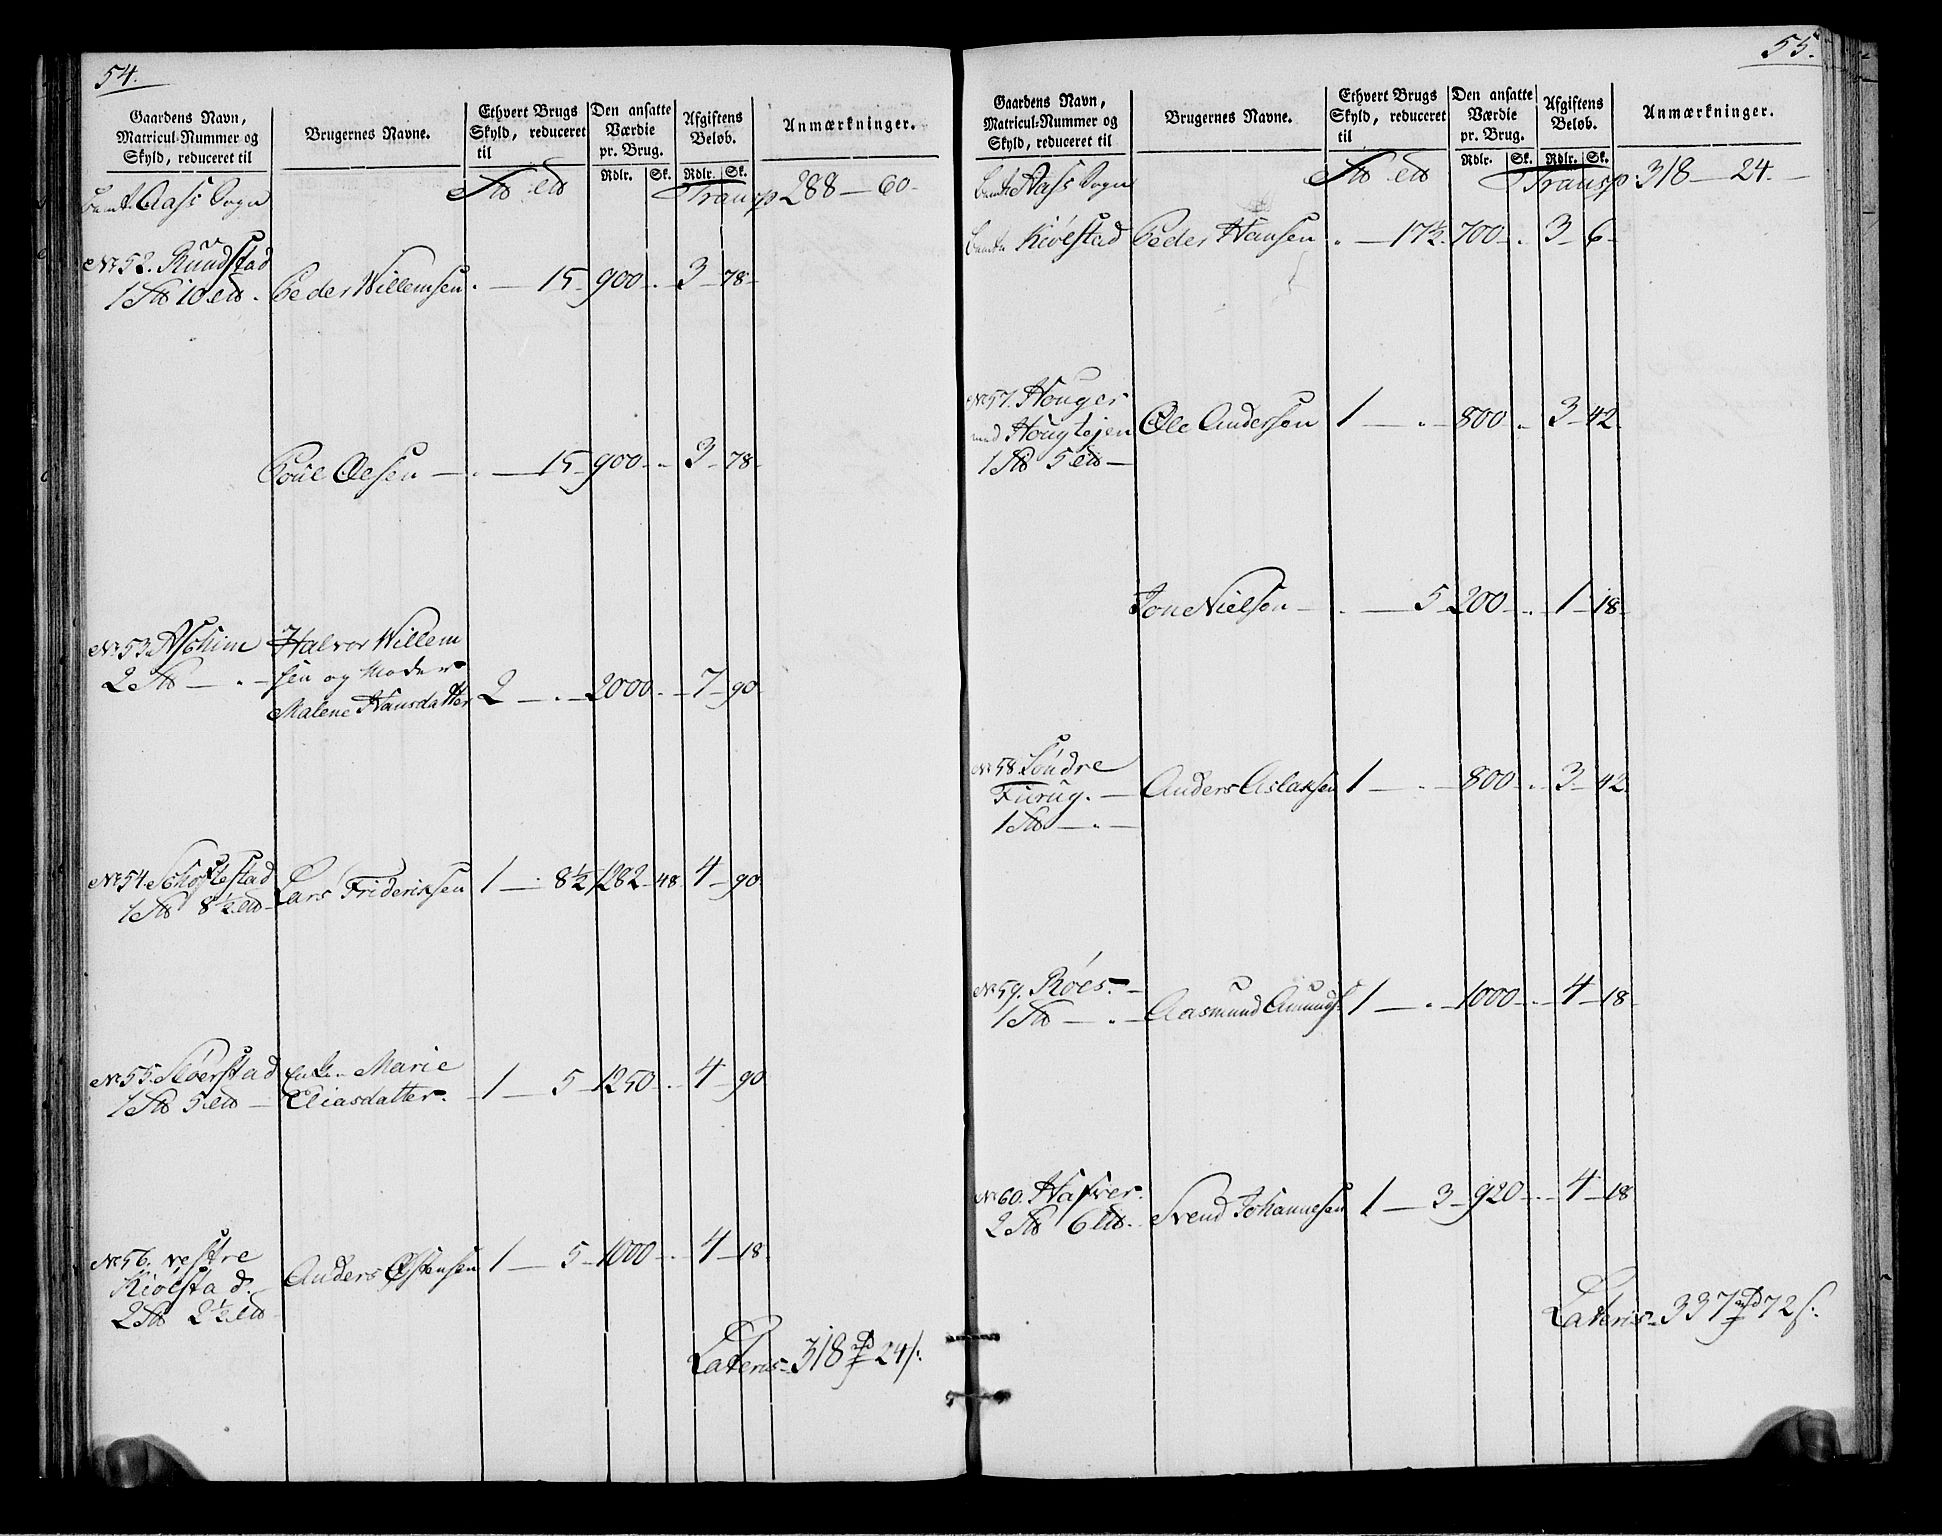 54.
Gaardens Navn, Matricul-Nummer og Skyld, reduceret til
Brugernes Navne.
Ethvert Brugs Skyld, reduceret til
Den ansatte Værdie pr. Brug.
Afgiftens Beløb.
Anmærkninger.
Rdlr. Sk. Rdlr. Sk.
Aass Sogn Transp 288 - 60 -
No 52. Ruudstad
Peder Willemsen . - 15 - 900 - . - 3 - 78 -
Poul Olsen - . - 15 - 900 - . - 3 - 78 -
No 53. Aschim Halvor Willem
2 - . - sen og Moder
Malene Hansdatter 2 - . - 2000 . - 7 - 90
No 54. Schoftestad
Lars Friderichsen 1 - 8½ 1282 - 48 4 - 90
No 55. Sloerstad Enke Marie
Eliasdatter. 1 - 5 - 1250 - . - 4 - 90
No 56. vestre
Kiølstad.
Anders Østensen 1 - 5 - 1000 - . - 4 - 18
Lateris - 318 rd 24 s.
55.
Gaardens Navn, Matricul-Nummer og Skyld, reduceret til
Brugernes Navne.
Ethvert Brugs Skyld, reduceret til
Den ansatte Værdie pr. Brug.
Afgiftens Beløb.
Anmærkninger.
Rdlr. Sk. Rdlr. Sk.
Aass Sogn Transp 318 - 24. -
Kiølstad Peder Hansen . - 17½ 700 - . 3 - 6 -
No 57. Houger
med
Ole Andersen 1 - . - 800 - . 3 - 42
Jon Nielsen - . - 5 - 200 - . 1 - 18
No 58. Søndre
Furug. - Anders Aslaksen 1 - . - 800 - . 3 - 42
No 59. Røes. -
Aasmund Amunds. 1 - . - 1000 - . - 4 - 18
No 60. Hafver.
Svend Johannesen 1 - 3 - 920 - . - 4 - 18
Lateris - 337 rd 72 s.